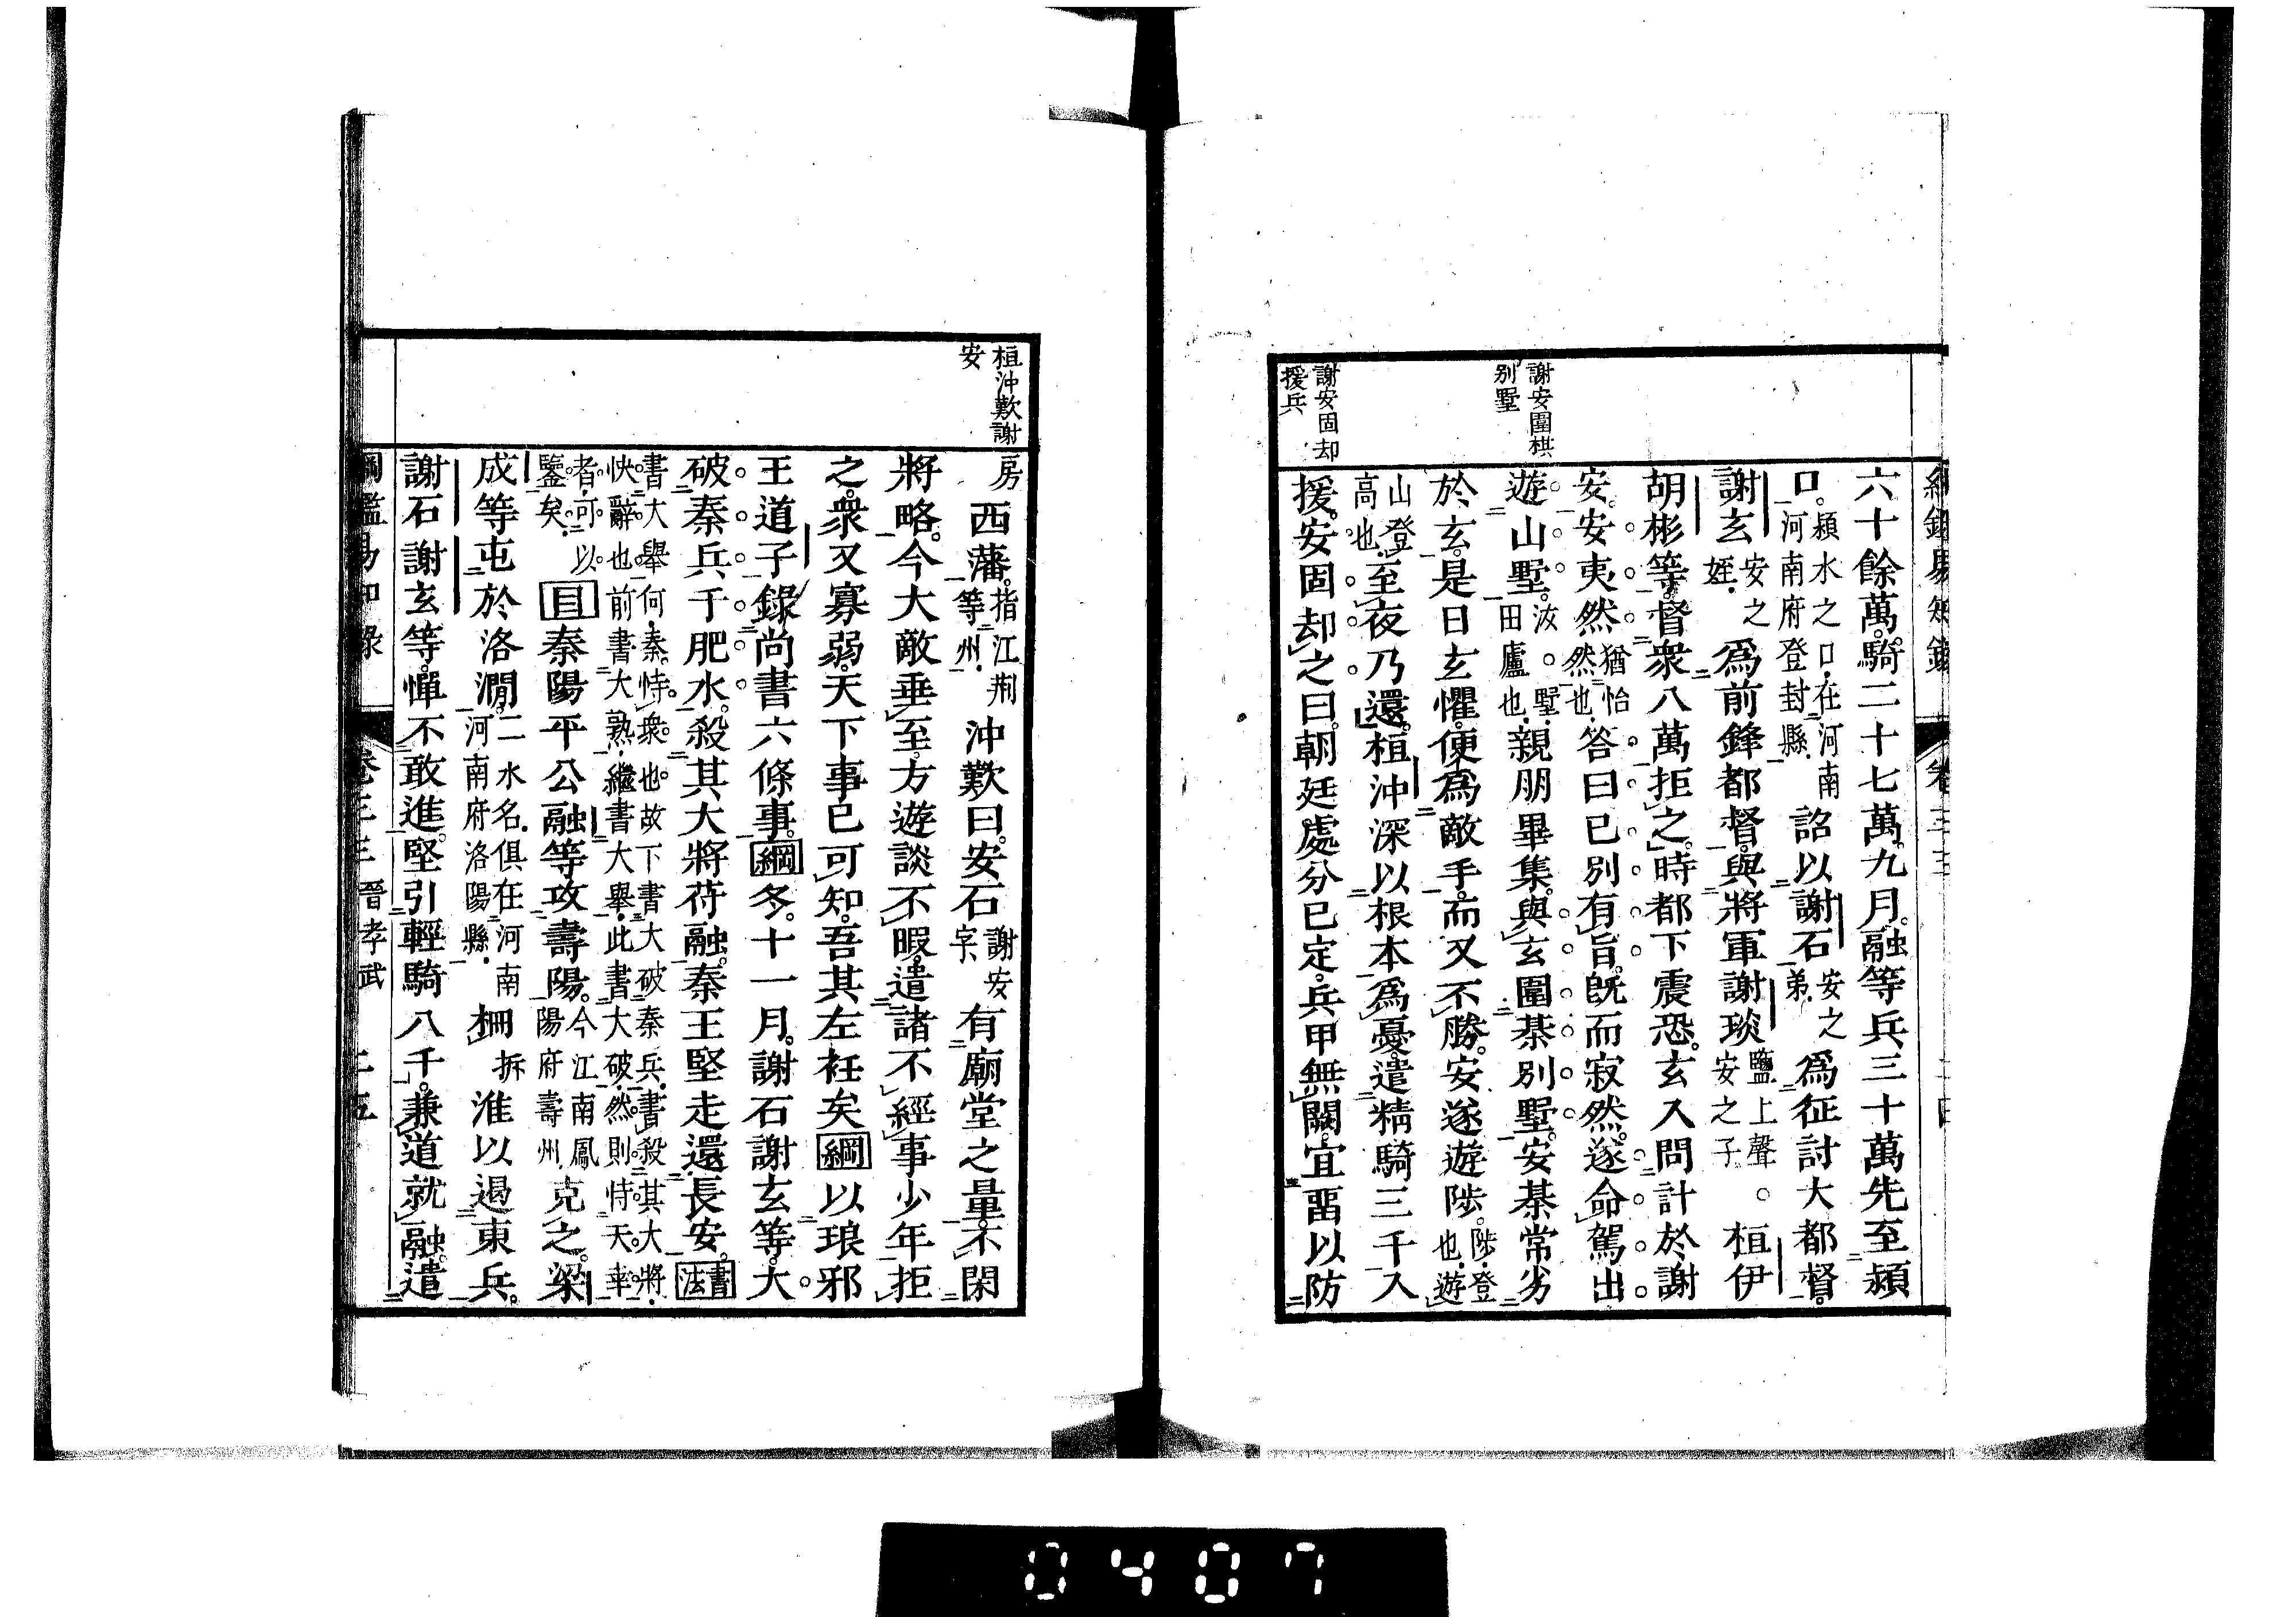 綱鑑易知錄 卷三三
六十餘萬。騎二十七萬。九月。融等兵三十萬先至潁
口。潁水之口。在河南河南府登封縣。詔以謝石安之弟。爲征討大都督。
謝玄安之姪。爲前鋒都督。與將軍謝琰鹽上聲。○安之子。桓伊
胡彬等。督衆八萬拒之。時都下震恐。玄入問計於謝
安。安夷然猶怡然也。答曰已別有旨。旣而寂然。遂命駕出
遊山墅。汝。○墅。田廬也。親朋畢集。與玄圍棊別墅。安棊常劣
於玄。是日玄懼。便爲敵手。而又不勝。安遂遊陟。陟。登也。遊
山登高也。至夜乃還。桓沖深以根本爲憂。遣精騎三千入
援。安固却之曰。朝廷處分已定。兵甲無闕。宜畱以防
謝安圍棋別墅
謝安固却援兵
西藩。指江荆等州。沖歎曰。安石謝安字。有廟堂之量。不閑
將略。今大敵垂至。方遊談不暇。遣諸不經事少年拒
之。衆又寡弱。天下事已可知。吾其左衽矣 綱 以琅邪
王道子錄尚書六條事。綱 冬。十一月。謝石謝玄等。大
破秦兵于肥水。殺其大將苻融。秦王堅走還長安。書法
書大舉何。秦恃衆也。故下書大破秦兵。書殺其大將。
怏辭也。前書大熟。繼書大舉。此書大破。然則恃天幸
者。可以鑒矣。目 秦陽平公融等攻壽陽。今江南鳳陽府壽州。克之。梁
成等屯於洛澗。二水名。俱在河南河南府洛陽縣。柵拆淮以遏東兵。
謝石謝玄等。憚不敢進。堅引輕騎八千。兼道就融。遣
桓沖歎謝安
房
綱鑑易知錄 卷三三 晉孝武 二五
0407